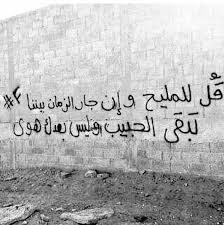 قُل للمليح وإن جار الزمان بيننا #٢
تبقى الحبيب وليس بعدك هوى